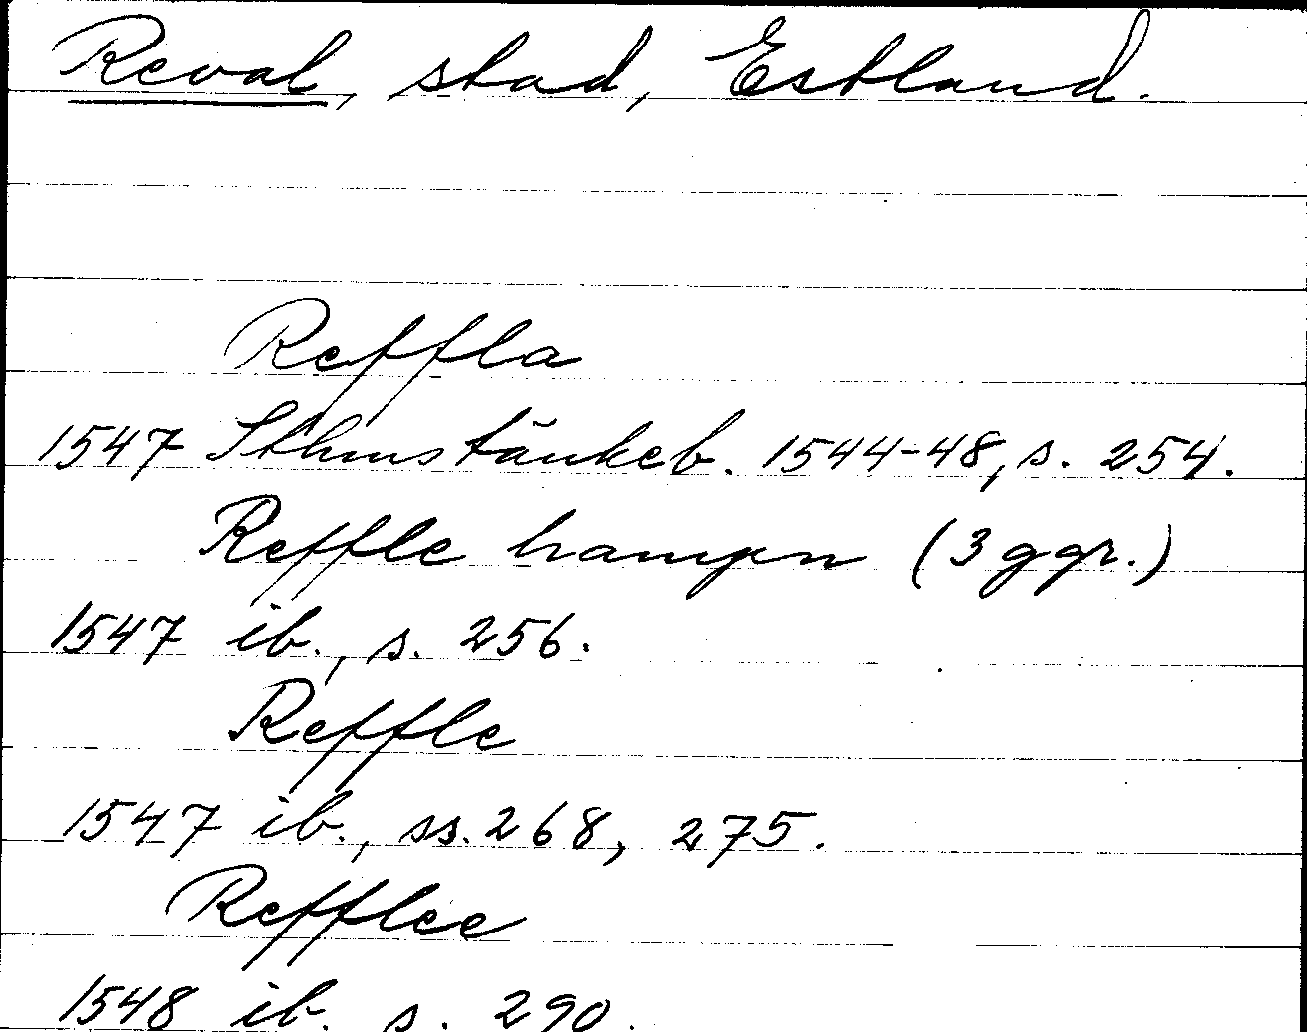 Reval, stad, Estland.
Reffla
1547 Sthmstänkeb. 1544-48, s. 254.
Reffle hampn (3 ggr.)
1547 ib., s. 256.
Reffle
1547 ib., ss. 268, 275.
Refflee
1548 ib. s. 290.